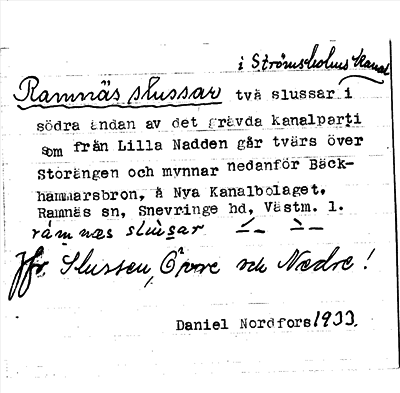 i Strömsholms Kanal
Ramnäs slussar två slussar i
södra ändan av det grävda kanalparti
som från Lilla Nadden går tvärs över
Storängen och mynnar nedanför Bäck-
hammarsbron, å Nya Kanalbolaget.
Ramnäs sn, Snevringe hd, Västm. l.
ràmnæs slùsar
Jfr. Slussen, Övre och Nedre!
Daniel Nordfors 1933.